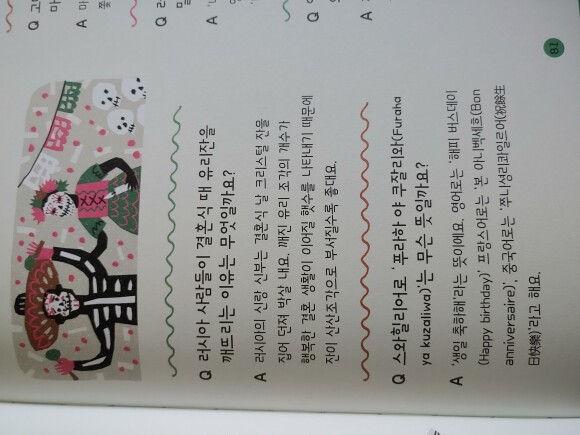 Q 러시아 사람들이 결혼식 때 유리잔을
깨뜨리는 이유는 무엇일까요?
A 러시아의 신랑 신부는 결혼식 날 크리스털 잔을
집어 던져 박살 내요. 깨진 유리 조각의 개수가
행복한 결혼 생활이 이어질 햇수를 나타내기 때문에
잔이 산산조각으로 부서질수록 좋대요.
Q 스와힐리어로 '푸라하 야 쿠잘리와(Furaha
ya kuzaliwa)'는 무슨 뜻일까요?
A '생일 축하해'라는 뜻이에요. 영어로는 '해피 버스데이
(Happy birthday)' 프랑스어로는 '본 아니벡세흐(Bon
anniversaire)', 중국어로는 '쭈니성리콰일르어(祝餘生
日快樂)'라고 해요.
Q
A
Q
A
Q
A
81